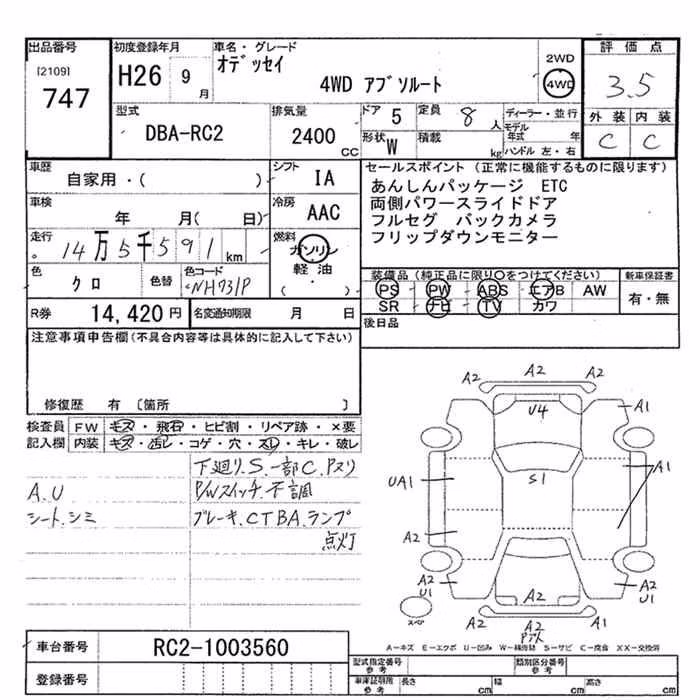 出品番号 初度登録年月 車名・グレード 2WD 評価点
[2109] H26 9月 オデッセイ 4WD
747 4WD アブソルート 3.5
型式 排気量 ドア 5 定員 8人 ディーラー・並行 外装 内装
DBA-RC2 2400cc 形状 W 積載 kg モデル年式 年 C C
ハンドル 左・右
車歴 シフト セールスポイント (正常に機能するものに限ります)
自家用・( ) IA あんしんパッケージ ETC
車検 冷房 両側パワースライドドア
年 月( 日) AAC フルセグ バックカメラ
走行 燃料 フリップダウンモニター
14万5千591km ガソリン
軽油
( )
色 クロ 色替 色コード NH731P 装備品 (純正品に限り○をつけてください) 新車保証書
PS PW ABS エアB AW 有・無
R券 14,420円 名変通知期限 月 日 SR ナビ TV カワ
注意事項申告欄(不具合内容等は具体的に記入して下さい) 後日品
修復歴 有 〔箇所 〕
検査員 FW キズ・飛石・ヒビ割・リペア跡・×要
記入欄 内装 キズ・汚レ・コゲ・穴・スレ・キレ・破レ
下廻りS.一部C.Pヌリ
A.U P/Wスイッチ.不調
シート.シミ ブレーキ.CTBA.ランプ
点灯
A2 A2 A2
U4 A1
UA1 S1 A1
A2
A2 U1 A2 U1
A2 A2
スペア A2 Pヌケ A1
A-キズ E-エクボ U-凹み W-補修跡 S-サビ C-腐食 XX-交換済
車台番号 RC2-1003560 型式指定番号 参考 類別区分番号 参考
登録番号 車庫証明用 参考 長さ cm 幅 cm 高さ cm